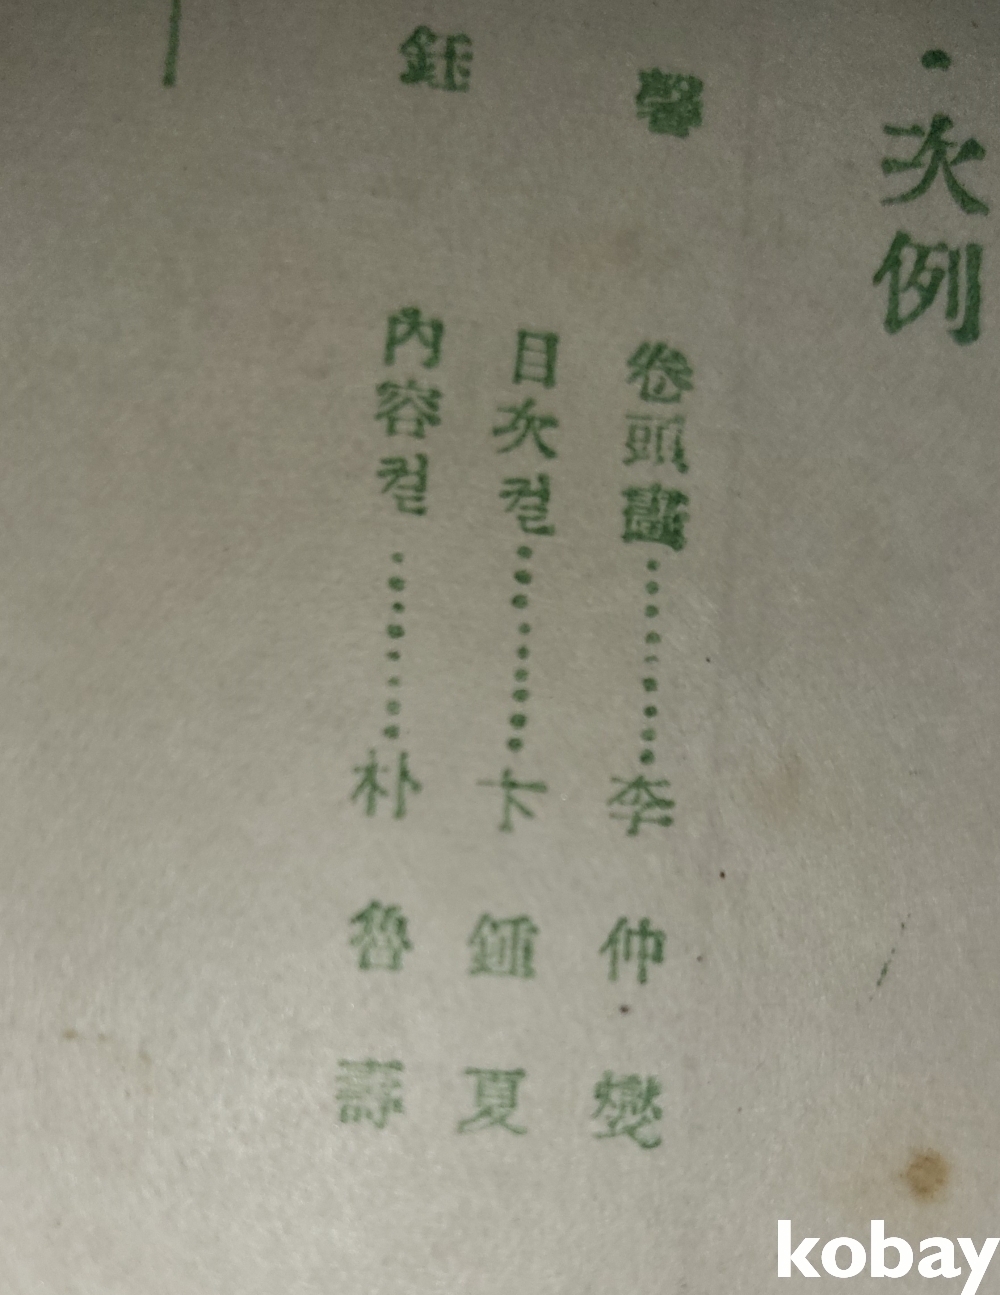 ・次例
馨
卷頭畵⋯⋯⋯李仲燮
目次컽⋯⋯⋯卞鍾夏
鈺
內容컽⋯⋯⋯朴魯壽
kobay